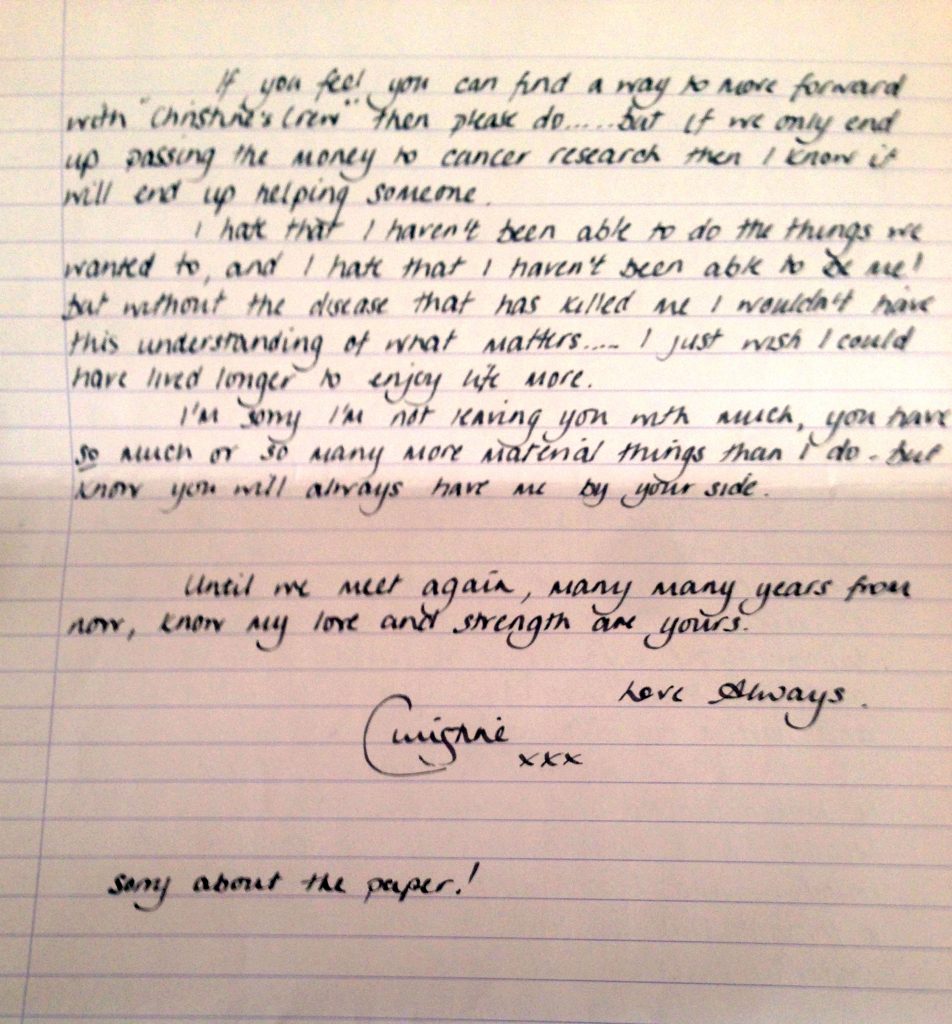 If you feel you can find a way to move forward
with "Christine's Crew" then please do.....but if we only end
up passing the money to cancer research then I know it
will end up helping someone.
I hate that I haven't been able to do the things we
wanted to, and I hate that I haven't been able to be me!
but without the disease that has killed me I wouldn't have
this understanding of what matters.... I just wish I could
have lived longer to enjoy life more.
I'm sorry I'm not leaving you with much, you have
so much or so many more material things than I do - but
know you will always have me by your side.
Until we meet again, many many years from
now, know my love and strength are yours.
Love Always.
Christine
xxx
sorry about the paper!